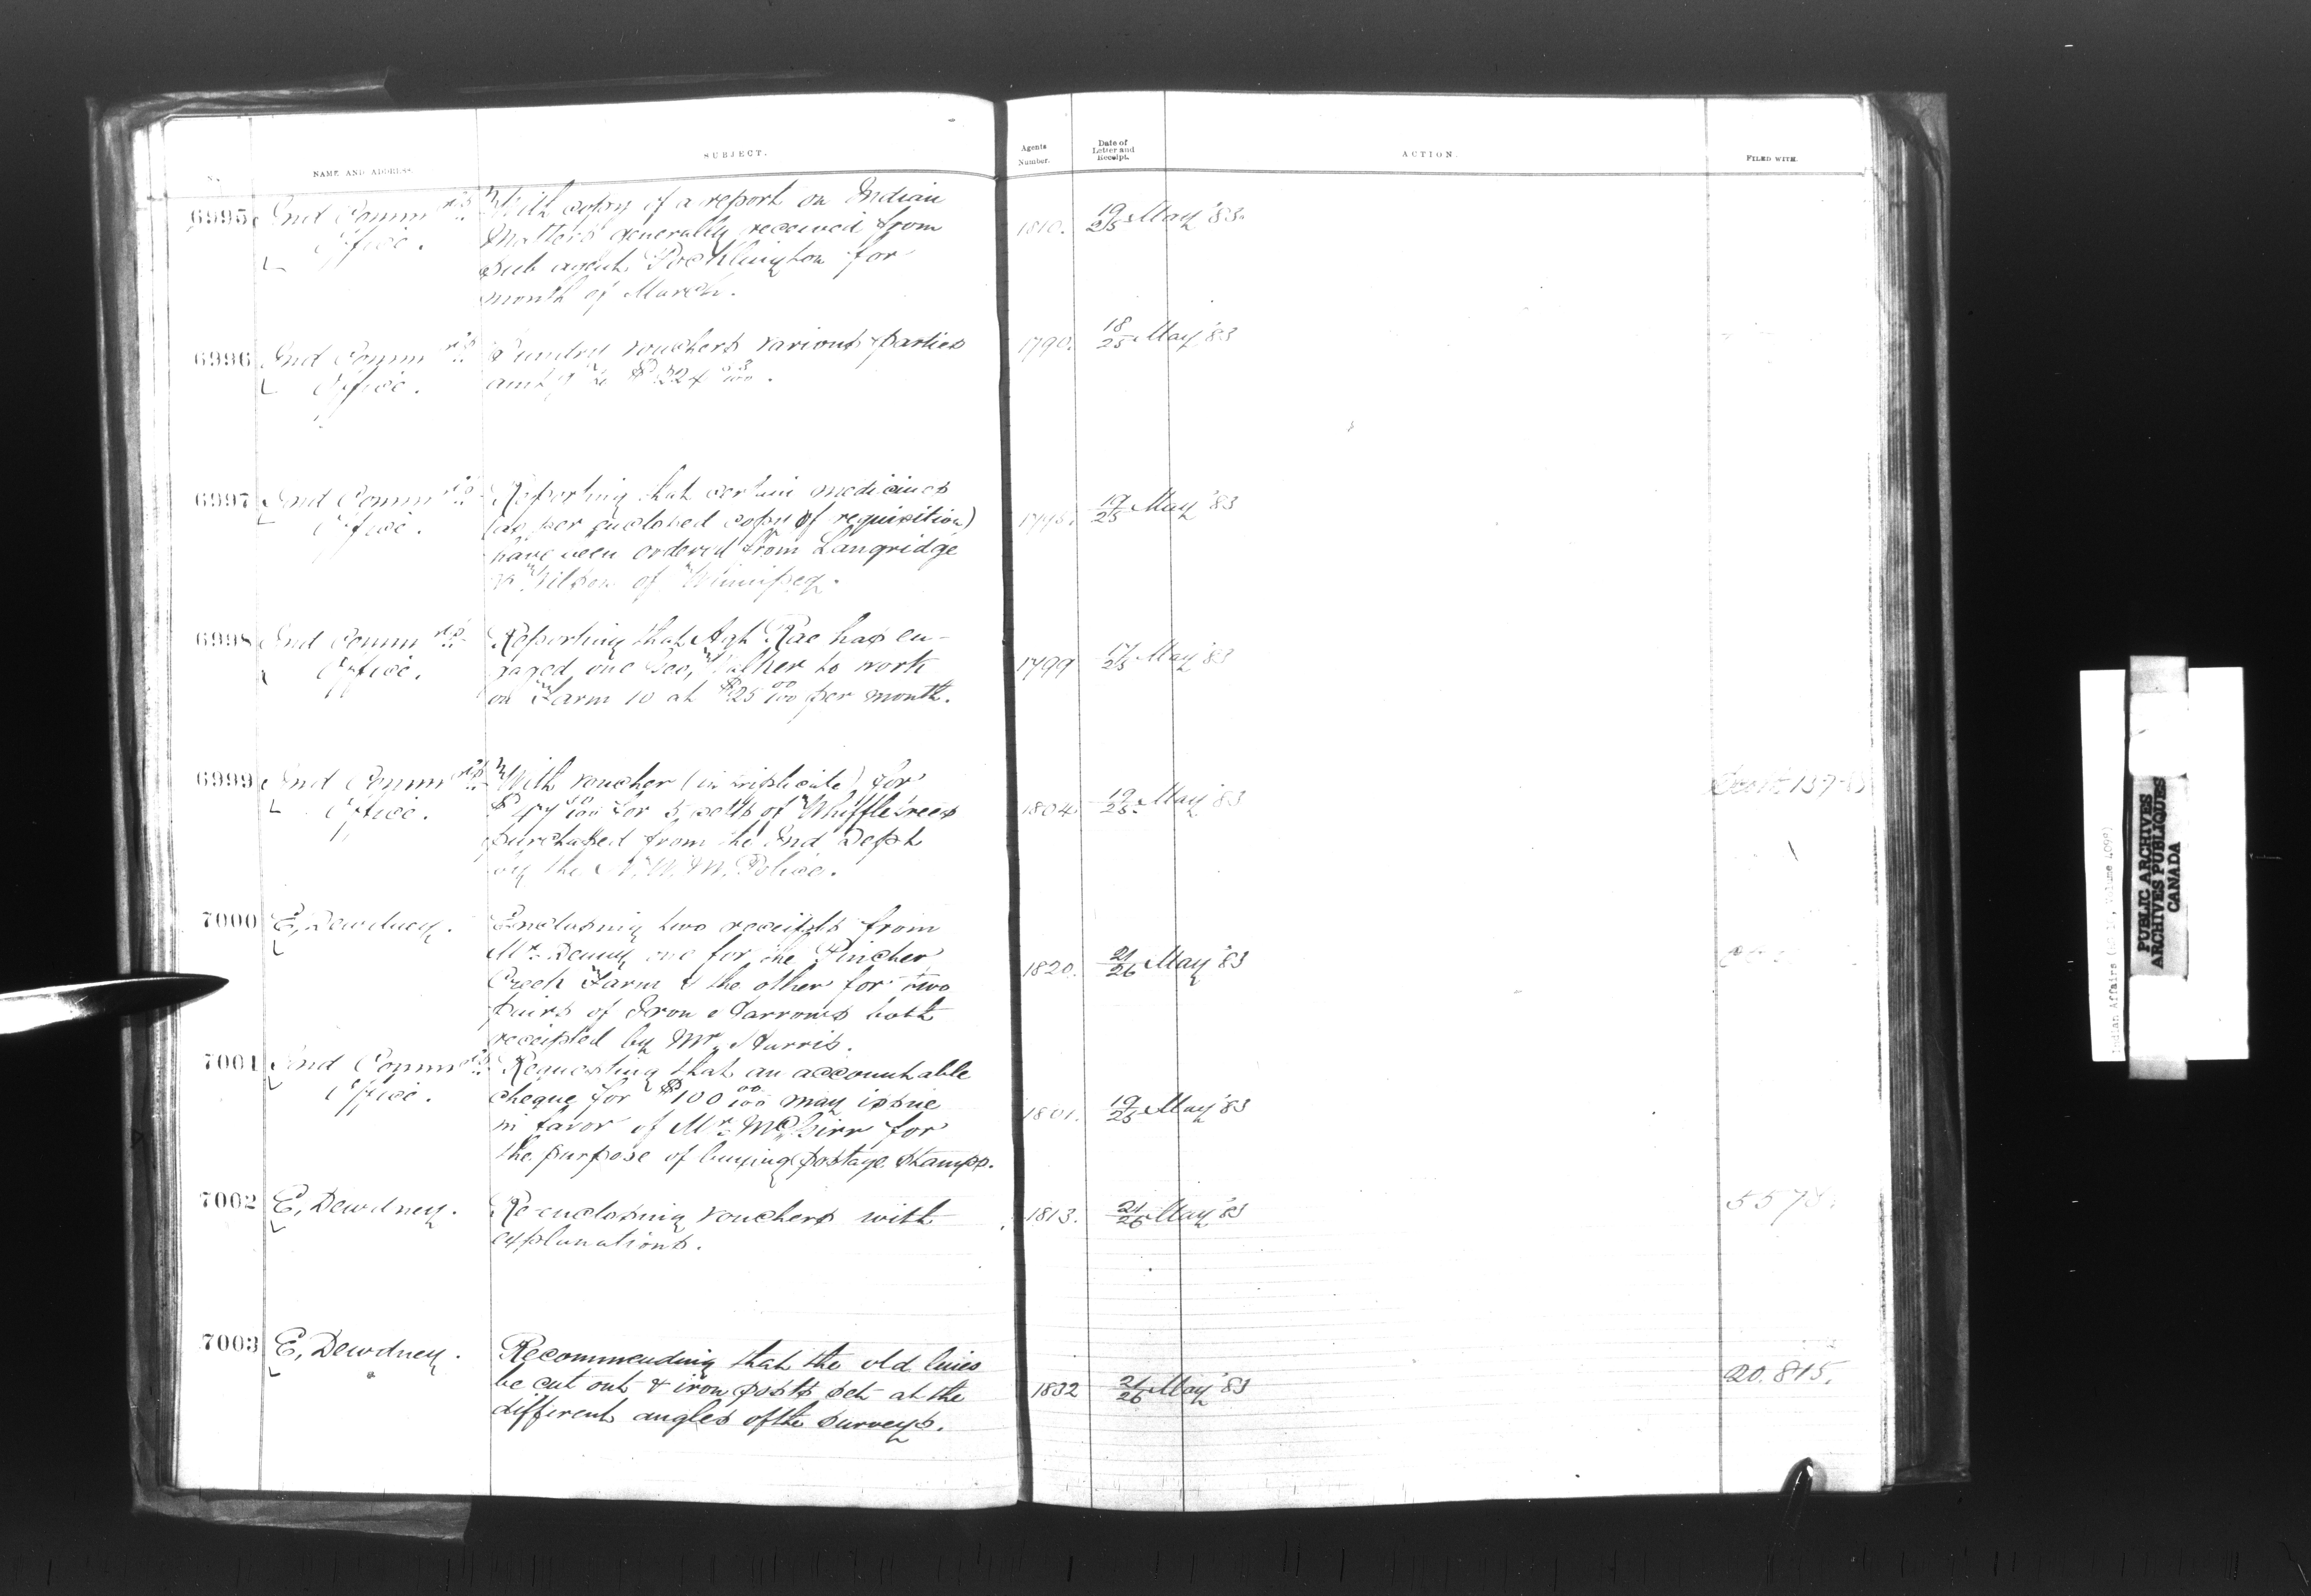 No.
NAME AND ADDRESS.
SUBJECT.
Agents Number.
Date of Letter and Receipt.
ACTION.
FILED WITH.
6995 Ind Commrs With copy of a report on Indian 1810. 19/25 May '83.
Office. Matters generally received from
Sub agent Pocklington for
month of March.
6996 Ind Commrs Sundry vouchers various parties 1790. 18/25 May '83
Office. amt g to $324
6997 Ind Commrs Reporting that certain medicines 19/25 May '83
Office. (as per enclosed copy of requisition)
have been ordered from Langridge
& Wilson of Winnipeg.
6998 Ind Commrs Reporting that Agt Rae has en- 1799 17/25 May '83
Office. gaged one Geo, Walker to work
on Farm 10 at $25 00/100 per month.
6999 Ind Commrs With voucher (in triplicate) for 1804. 19/25 May '83
Office. $ 47 for 5 setts of Whiffletrees
purchased from the Ind Dept
by the N. W. M. Police.
7000 E, Dewdney. Enclosing two receipts from
Mr. Denny one for the Pincher 1820. 21/26 May '83
Creek Farm & the other for two
pairs of Iron Harrows both
receipted by Mr. Harris.
7001 Ind Commrs Requesting that an accountable
Office. cheque for $100 00/100 may issue 1801. 19/25 May '83
in favor of Mr. McGirr for
the purpose of buying postage stamps.
7002 E, Dewdney. Re enclosing vouchers with 1813. 21/26 May '83 5578.
explanations.
7003 E, Dewdney. Recommending that the old lines
be cut out & iron posts set at the 1832 21/26 May '83 20.815.
different angles of the surveys.
PUBLIC ARCHIVES
ARCHIVES PUBLIQUES
CANADA